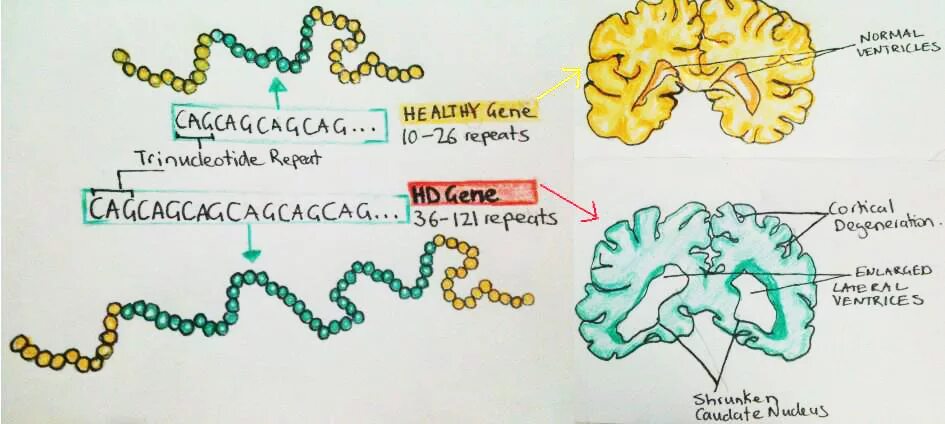 CAGCAGCAGCAG...
Trinucleotide Repeat
HEALTHY Gene
10-26 repeats
CAGCAGCAGCAGCAGCAG...
HD Gene
36-121 repeats
NORMAL
VENTRICLES
Cortical
Degeneration.
ENLARGED
LATERAL
VENTRICES
Shrunken
Caudate Nucleus